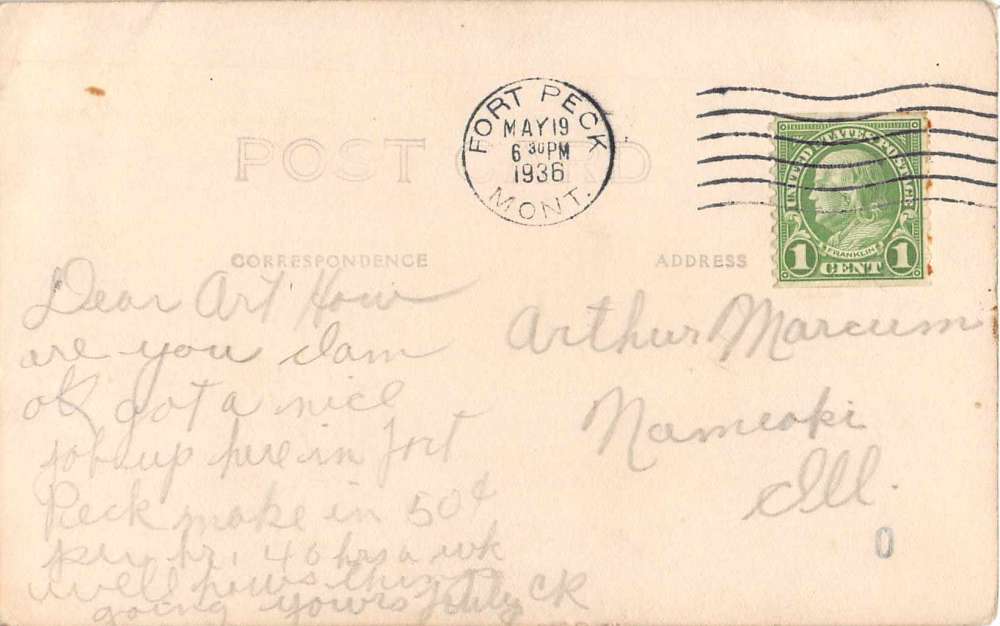 POST CARD
FORT PECK
MAY 19
6 30 PM
1936
MONT.
UNITED STATES POSTAGE
FRANKLIN
1 CENT 1
CORRESPONDENCE
ADDRESS
Dear Art How
are you I am
ok got a nice
job up here in Fort
Peck make in 50¢
per hr. 40 hrs a wk
well hows things
going yours truly CK
Arthur Marcum
Nameoki
Ill.
0